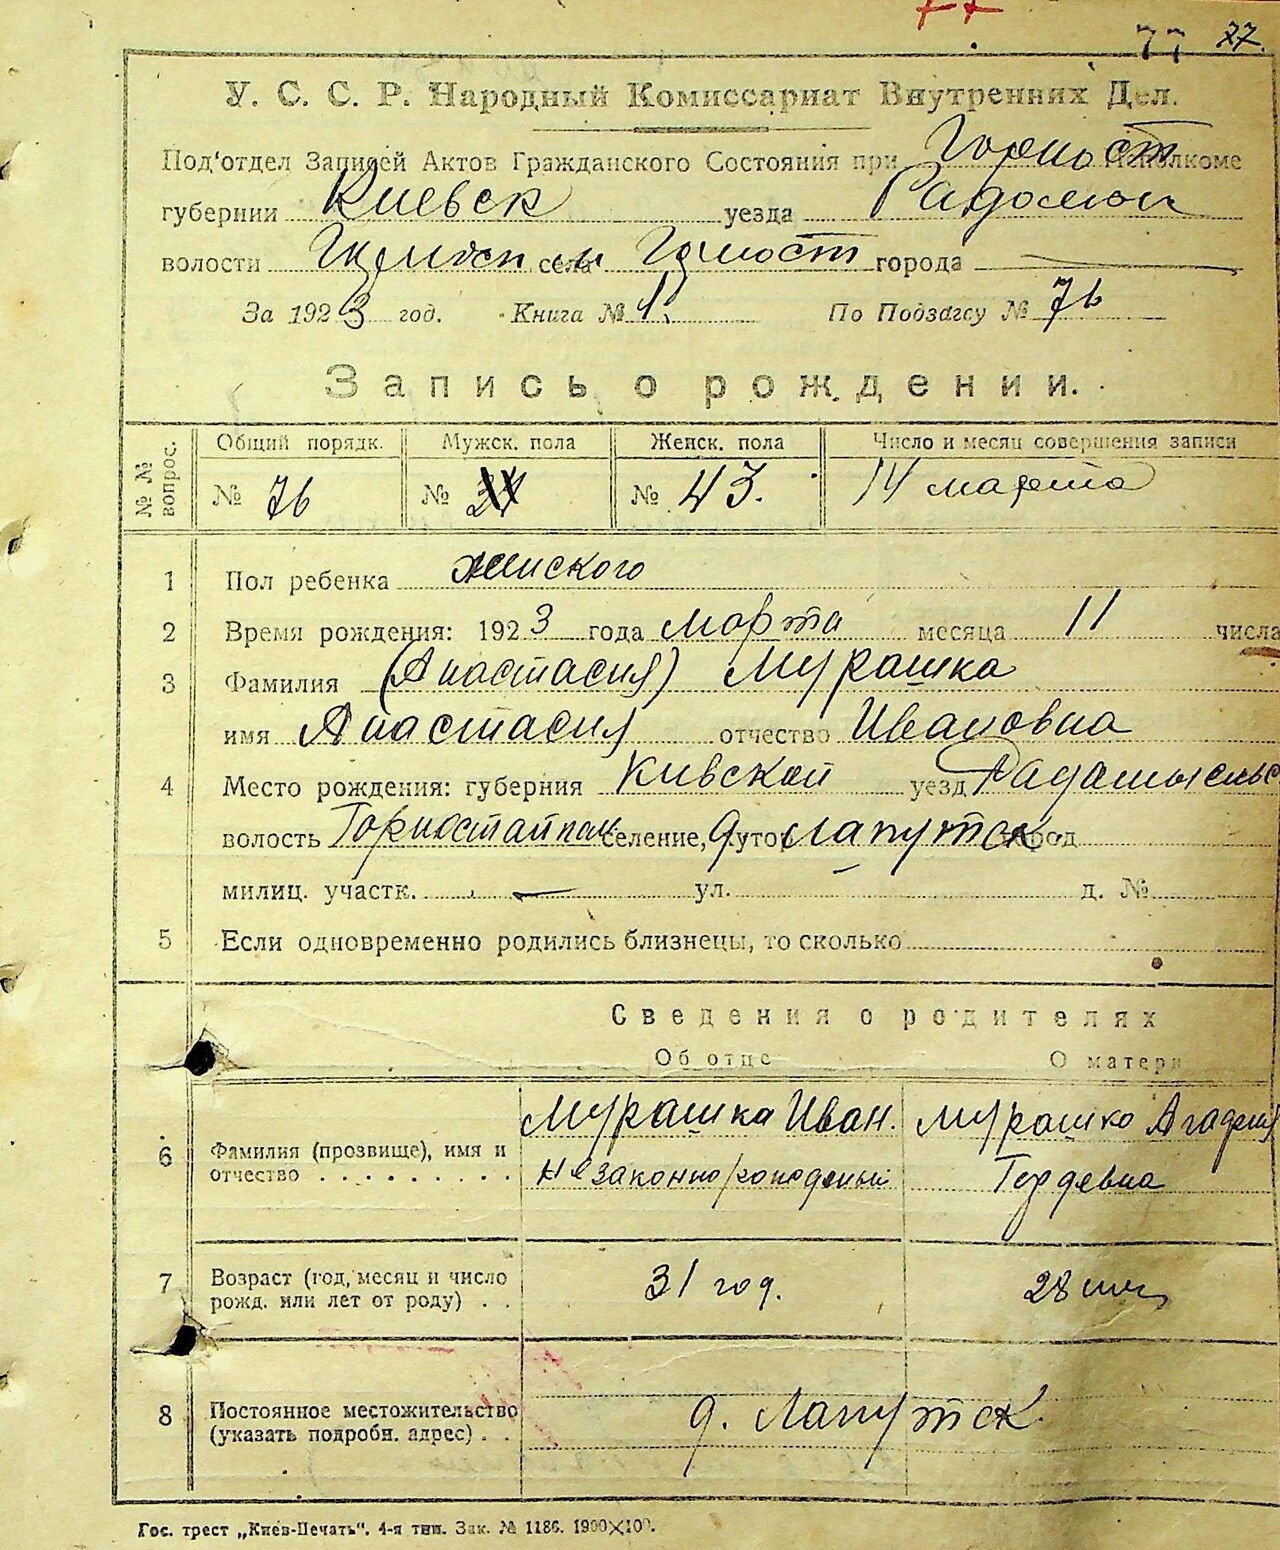 77 77.
У. С. С. Р. Народный Комиссариат Внутренних Дел.
Под'отдел Записей Актов Гражданского Состояния при Горност Исполкоме
губернии Киевск уезда Радомысл
волости села Горност города
За 1923 год. Книга № 1. По Подзагсу № 76
Запись о рождении.
№ № вопрос. Общий порядк. Мужск. пола Женск. пола Число и месяц совершения записи
№ 76 № № 43. 14 марта
1 Пол ребенка женского
2 Время рождения: 1923 года марта месяца 11 числа
3 Фамилия (Анастасия) Мурашка
имя Анастасия отчество Ивановна
4 Место рождения: губерния Кивской уезд Радамысльс
волость Горностайпол селение, хутор д Лапутск город
милиц. участк. — ул. д. №
5 Если одновременно родились близнецы, то сколько
Сведения о родителях
Об отце О матери
6 Фамилия (прозвище), имя и отчество Мурашка Иван. Мурашко
незаконнорожденый Гордевна
7 Возраст (год, месяц и число рожд. или лет от роду) 31 год. 28 лет
8 Постоянное местожительство (указать подробн. адрес) д. Лапутск
Гос. трест „Киев-Печать". 4-я тип. Зак. № 1186. 1900×100.